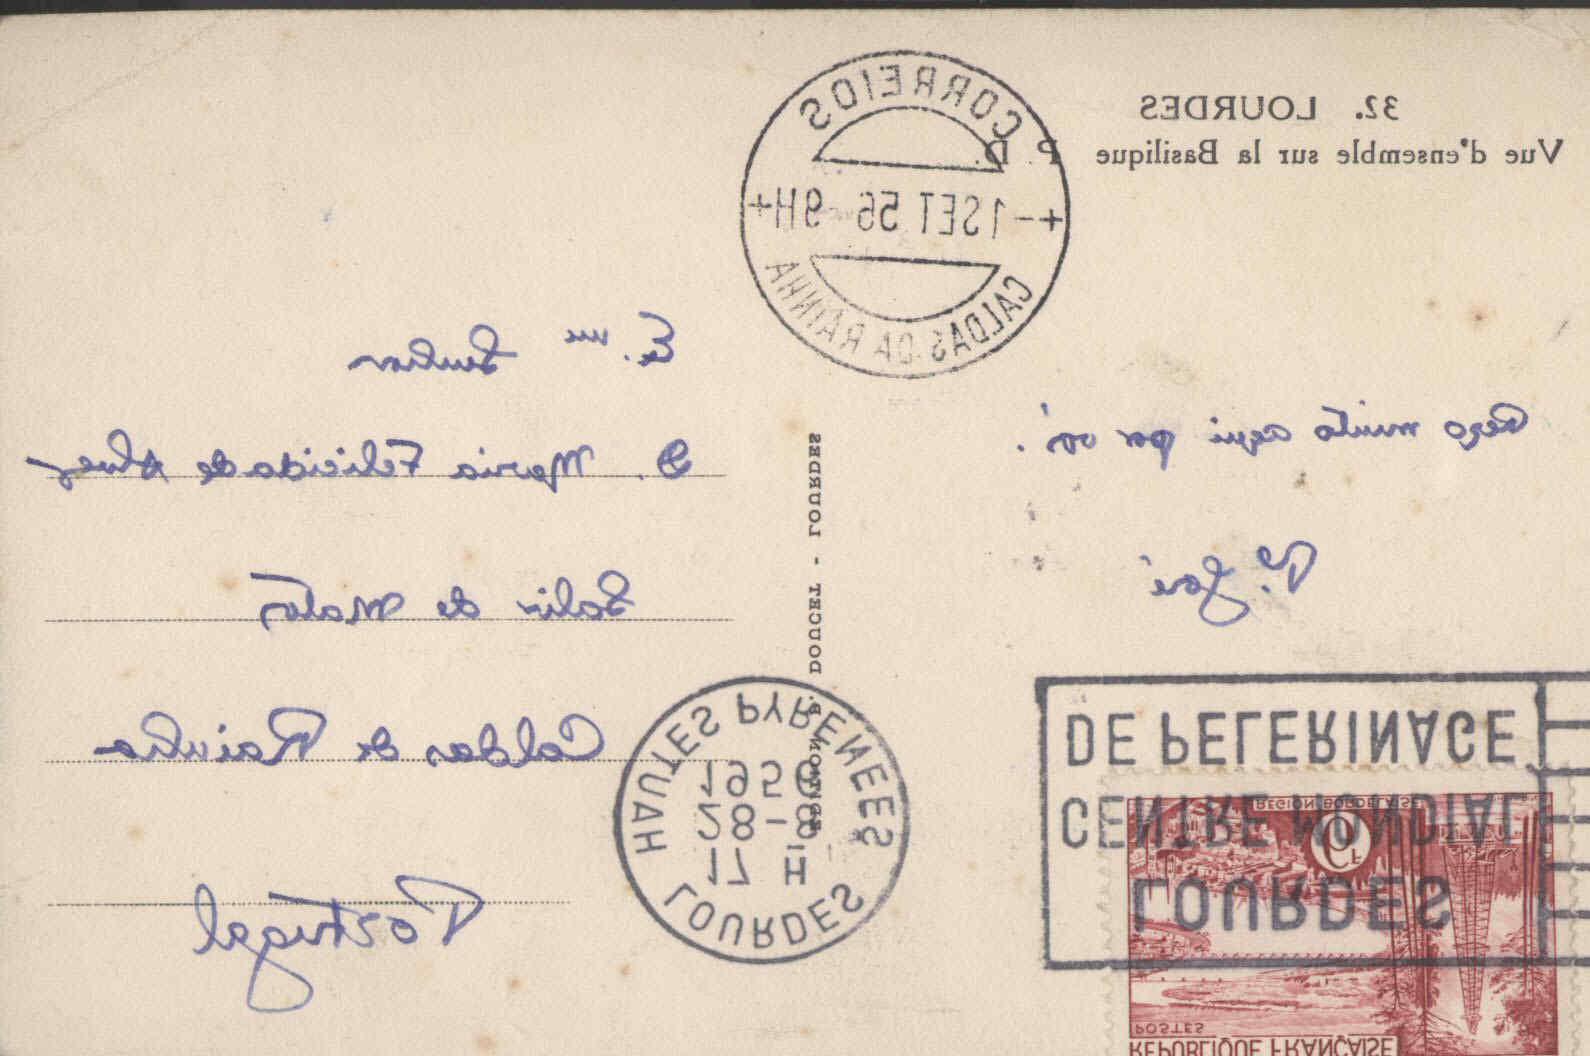 32. LOURDES
Vue d'ensemble sur la Basilique
P. D.
CORREIOS
+-1SET 56-9H+
CALDAS DA RAINHA
Rezo muito aqui por vós!
Pe. José
E.ma Senhora
D. Maria Felicidade Alves
Salir de Matos
Caldas da Rainha
Portugal
DOUCET - LOURDES
HAUTES PYRENEES
17 H
28-8
1956
LOURDES
LOURDES
CENTRE MONDIAL
DE PELERINAGE
REPUBLIQUE FRANÇAISE
POSTES
REGION BORDELAISE